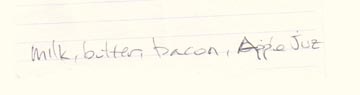 milk, butter, bacon, Apple Juz